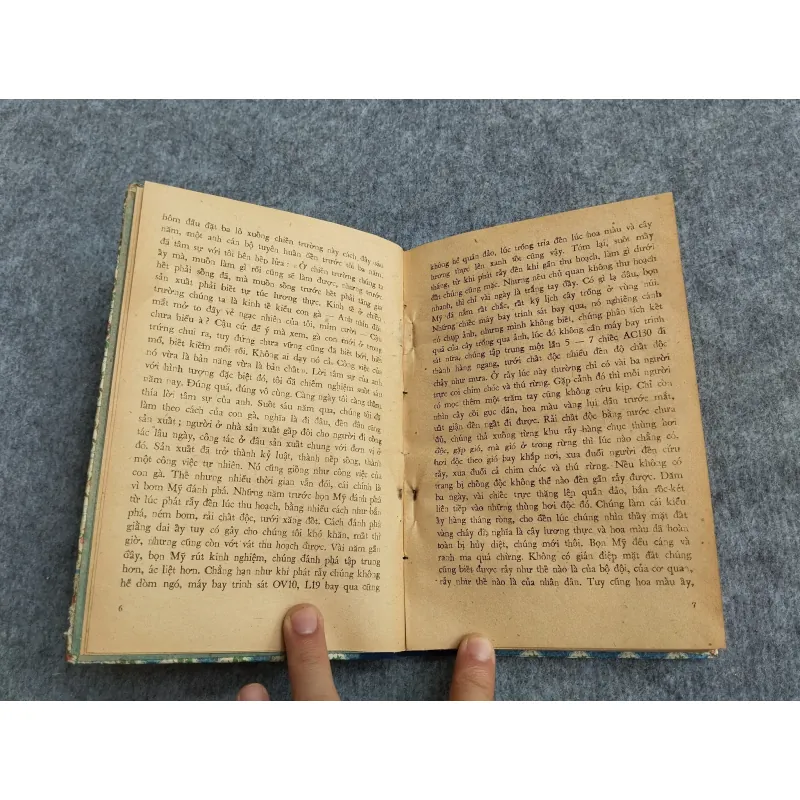 hôm đầu đặt ba lô xuống chiến trường này cách đây sáu
năm, một anh cán bộ tuyên huấn đến trước tôi ba năm,
đã tâm sự với tôi bên bếp lửa: «Ở chiến trường chúng ta
ấy mà, muốn làm gì rồi cũng sẽ làm được, nhưng trước
hết phải sống đã, mà muốn sống trước hết phải tăng gia
sản xuất phải biết tự túc lương thực. Kinh tế ở chiến
trường chúng ta là kinh tế kiểu con gà — Anh nhìn đôi
mắt mở to đầy vẻ ngạc nhiên của tôi, mỉm cười — Cậu
chưa hiểu à? Cậu cứ để ý mà xem, gà con mới ở trong
trứng chui ra, tuy đứng chưa vững cũng đã biết bới, biết
mổ, biết kiếm mồi rồi. Không ai dạy nó cả. Công việc của
nó vừa là bản năng vừa là bản chất». Lời tâm sự của anh
với hình tượng đặc biệt đó, tôi đã chiêm nghiệm suốt sáu
năm nay. Đúng quá, đúng vô cùng. Càng ngày tôi càng thấm
thía lời tâm sự của anh. Suốt sáu năm qua, chúng tôi đã
làm theo cách của con gà, nghĩa là đi đâu, đến đâu cũng
sản xuất; người ở nhà sản xuất gấp đôi cho người đi công
tác lâu ngày, công tác ở đâu sản xuất chung với đơn vị ở
đó. Sản xuất đã trở thành kỷ luật, thành nếp sống, thành
một công việc tự nhiên. Nó cũng giống như công việc của
con gà. Thế nhưng nhiều thời gian vẫn đói, cái chính là
vì bom Mỹ đánh phá. Những năm trước bọn Mỹ đánh phá
từ lúc phát rẫy đến lúc thu hoạch, bằng nhiều cách như bắn
phá, ném bom, rải chất độc, tưới xăng đốt. Cách đánh phá
giằng dai ấy tuy có gây cho chúng tôi khó khăn, mất thì
giờ, nhưng cũng còn vớt vát thu hoạch được. Vài năm gần
đây, bọn Mỹ rút kinh nghiệm, chúng đánh phá tập trung
hơn, ác liệt hơn. Chẳng hạn như khi phát rẫy chúng không
hề dòm ngó, máy bay trinh sát OV10, L19 bay qua cũng
6
không hề quần đảo, lúc trồng tỉa đến lúc hoa màu và cây
lương thực lên xanh tốt cũng vậy. Tóm lại, suốt mấy
tháng, từ khi phát rẫy đến khi gần thu hoạch, làm gì dưới
đất chúng cũng mặc. Nhưng nếu chủ quan không thu hoạch
nhanh, thì chỉ vài ngày là trắng tay đấy. Có gì lạ đâu, bọn
Mỹ đã nắm rất chắc, rất kỹ lịch cây trồng ở vùng núi.
Những chiếc máy bay trinh sát bay qua, nó nghiêng cánh
có chụp ảnh, nhưng mình không biết, chúng phân tích kết
quả của cây trồng qua ảnh, lúc đó không cần máy bay trinh
sát nữa, chúng tập trung một lần 5 — 7 chiếc AC130 đi
thành hàng ngang, tưới chất độc nhiều đến độ chất độc
chảy như mưa. Ở rẫy lúc này thường chỉ có vài ba người
trực coi chim chóc và thú rừng. Gặp cảnh đó thì mỗi người
có mọc thêm một trăm tay cũng không cứu kịp. Chỉ còn
nhìn cây cối gục dần, hoa màu vàng lụi dần trước mắt,
sát giận đến ngất đi được. Rải chất độc bằng nước chưa
đủ, chúng thả xuống từng khu rẫy hàng chục thùng hơi
độc, gặp gió, mà gió ở trong rừng thì lúc nào chẳng có,
hơi độc theo gió bay khắp nơi, xua đuổi người đến cứu
rẫy, xua đuổi cả chim chóc và thú rừng. Nếu không có
trang bị chống độc không thể nào đến gần rẫy được. Dăm
ba ngày, vài chiếc trực thăng lên quần đảo, bắn rốc-két
liên tiếp vào những thùng hơi độc đó. Chúng làm cái kiểu
ấy hàng tháng ròng, cho đến lúc chúng nhìn thấy mặt đất
vàng cháy đi; nghĩa là cây lương thực và hoa màu đã hoàn
toàn bị hủy diệt, chúng mới thôi. Bọn Mỹ đều cáng và
ranh ma quá chừng. Không có gián điệp mặt đất chúng
cũng biết được rẫy như thế nào là của bộ đội, của cơ quan,
rẫy như thế nào là của nhân dân. Tuy cũng hoa màu ấy,
7